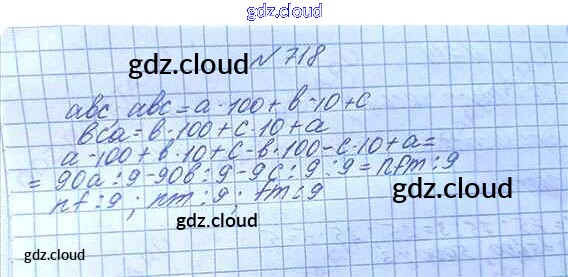 gdz.cloud
№ 718
gdz.cloud
abc, abc = a · 100 + b · 10 + c
gdz.cloud
bca = b · 100 + c · 10 + a
a · 100 + b · 10 + c - b · 100 - c · 10 + a =
= 90a : 9 - 90b : 9 - 9c : 9 : 9 = nfm : 9
nf : 9 ; nm : 9 ; fm : 9
gdz.cloud
gdz.cloud
gdz.cloud